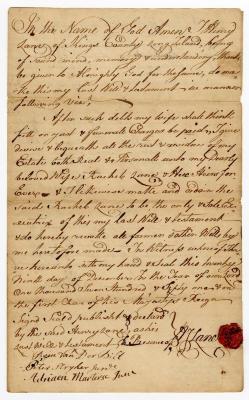 In the Name of God Amen. I Henry
Lane of Kings County Long Island, being
of Sound mind, memory & understanding thanks
be given to Almighty God for the same, do ma
ke this my last Will & Testament in manner
following Viz:
After such debts my wife shall think
fitt or just & Funerale Charges be paid I give
devise & bequeath all the rest & residue of my
Estate both Real & Personale unto my dearly
beloved Wife Rachel Lane & Heir Heirs for
Ever & I likewise make and ordain the
said Rachel Lane to be the only & Sole Ex=
ecutrix of this my last Will & Testament
& do hereby revoke all former & other Wills by
me heretofore made. In Witness whereof I ha
ve hereunto sett my hand & seal this
day of December in the Year of our Lord
One Thousand Seven Hundred & Sixty one & in
the first Year of his Majestys Reign
Signed Sealed published & declared
by the said Henry Lane, as his
last Will & Testament in Presence of
H Lane
Jan Van Der Bilt
Peter
Adriaen Martense